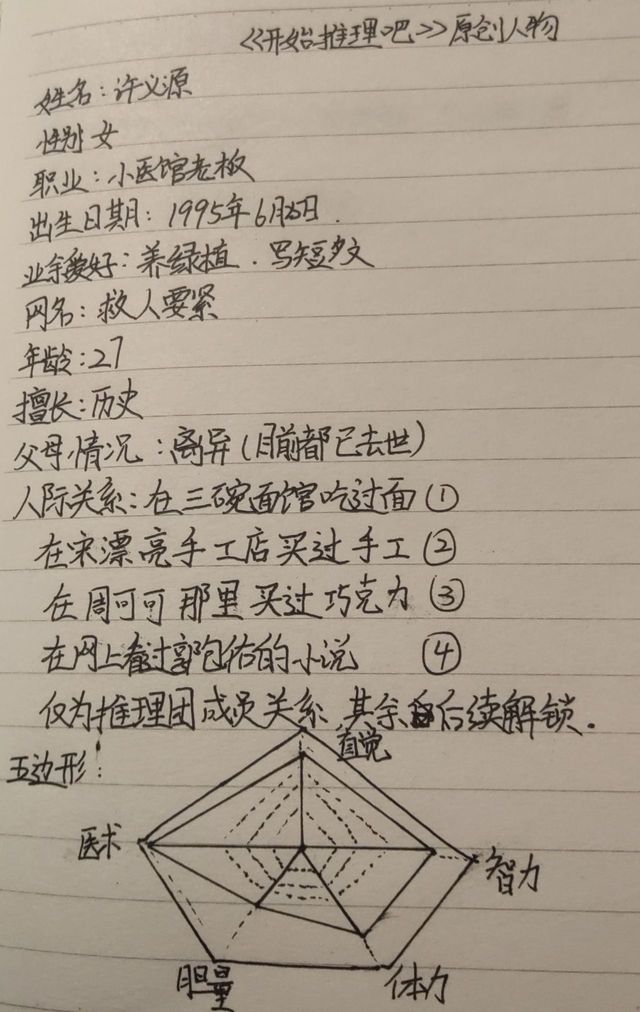 《开始推理吧》原创人物
姓名：许义源
性别 女
职业：小医馆老板
出生日期：1995年6月5日.
业余爱好：养绿植.写短文
网名：救人要紧
年龄：27
擅长：历史
父母情况：离异（目前都已去世）
人际关系：在三碗面馆吃过面①
在宋漂亮手工店买过手工②
在周可可那里买过巧克力③
在网上看过郭的小说 ④
仅为推理团成员关系.其余后续解锁.
五边形：
直觉
医术
智力
胆量
体力